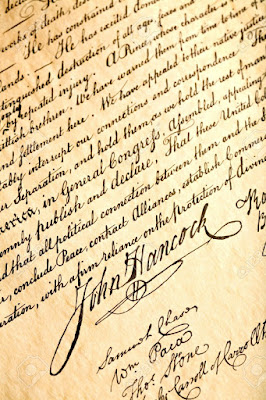 works of death, 
He has constrained
He has excited domes
of all ages, sexes and
ands. A Prince whose character is
repeated injury.
brethren. We have warned them from time to time of
and settlement here. We have appealed to their native justice
ably interrupt our connections and correspondence
ur Separation, and hold them as we hold the rest of man
erica, in General Congress, Assembled, appealing
emnly publish and declare, That these United Co
nd that all political connection between them and the S
, conclude Peace, contract Alliances, establish Comme
eration, with a firm reliance on the protection of divine
John Hancock
Samuel Chase
Wm Paca
Thos Stone
Carroll of Carrollt